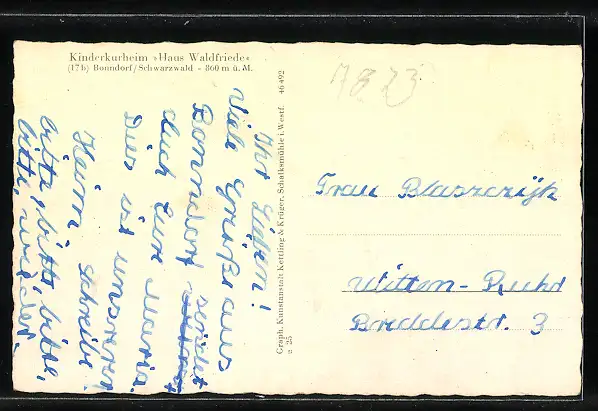 Kinderkurheim »Haus Waldfriede«
(17b) Bonndorf/Schwarzwald - 860 m ü. M.
Ihr Lieben!
Viele Grüße aus
Bonndorf sendet
Euch Eure Maria.
Dies ist unserer
Heim schreibe
bitte, bitte, bitte,
bitte, wieder.
Graph. Kunstanstalt Kettling & Krüger, Schalksmühle i. Westf. 46 492
e 25
7823
Frau Blaszczijk
Witten-Ruhr
Breddestr. 3